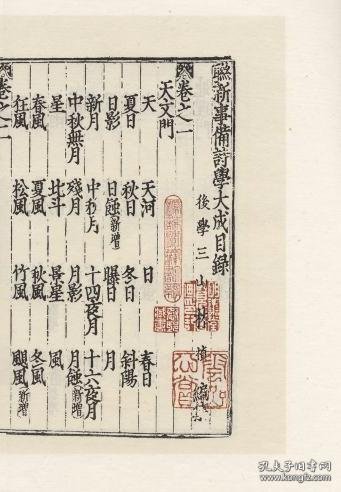 聮新事備詩學大成目錄
後學三山林楨編集
卷之一
天文門
天 天河 日 春日
夏日 秋日 冬日 斜陽
日影 日蝕新增 曝日 月
新月 中秋月 十四夜月 十六夜月
中秋無月 殘月 月影 月蝕新增
星 北斗 景星 風
春風 夏風 秋風 冬風
狂風 松風 竹風 颶風新增
卷之二
孔夫子旧书网
www.kongfz.com